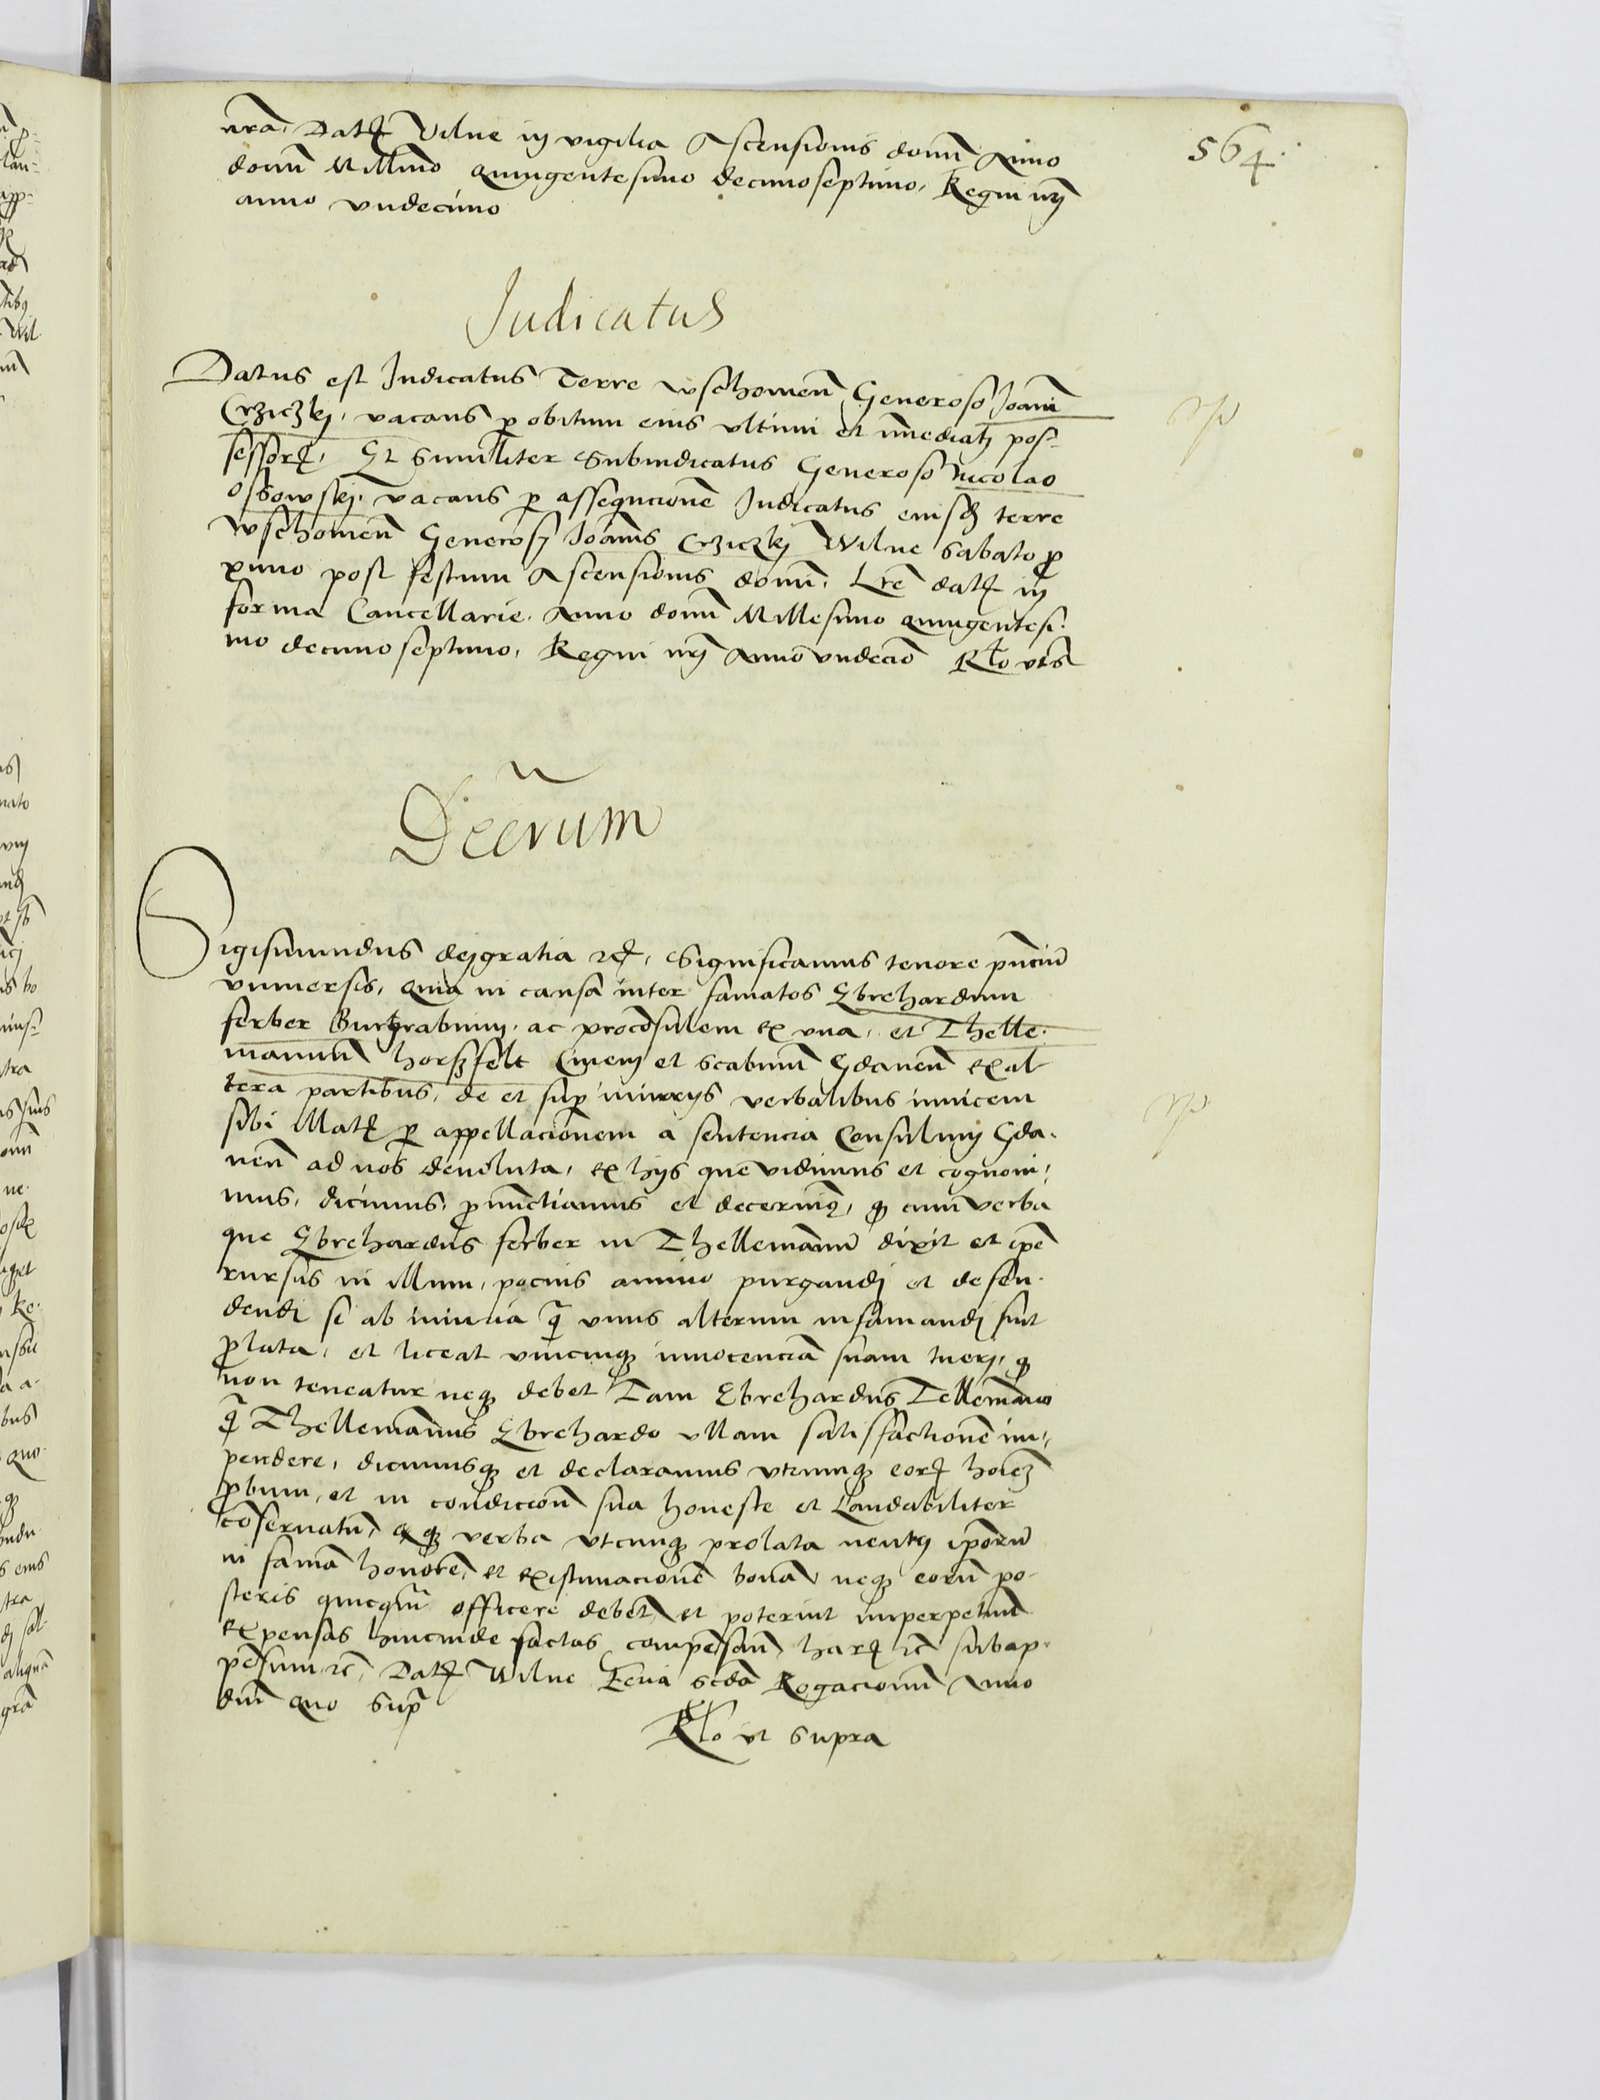 564
nrã. Datę Vilne in vigilia Ascensionis domī Anno
domī Millmo Quingentesimo decimoseptimo, Regni nrī
anno vndecimo
Judicatus
Datus est Judicatus Terre wschowen̄ Generoso Joanni
Crziczki, vacans p obitum eius vltimi et īmediati pos-
sessorę, Et similiter Subiudicatus Generoso Nicolao
ossowski, vacans p assequcionē Judicatus eiusdē terre
wschowen̄ Generosi Joānis Crziczki Wilne sabato pro
ximo post festum Ascensionis domī. Lrē datę in
forma Cancellarie. Anno domī Millesimo quingentesi-
mo decimo septimo, Regni nrī Anno vndecīo Rlo vts
Decrum
Sigismundus dei gratia ⁊cę, Significamus tenore pn̄ciū
vniuersis, Quia in causa inter famatos Ebrehardum
ferber Burgrabium, ac procōsulem ex vna, et Thelle-
mannum horszfelt Ciuem et scabinum Gdanen̄ ex al
tera partibus, de et sup iniuriis verbalibus inuicem
sibi illatę p appellacionem a sentencia Consulum Gda-
nen̄ ad nos deuoluta, ex hys que vidimus et cognoui-
mus, dicimus, pnunctiamus et decernimꝰ, qꝫ cum verba
que Ebrehardus ferber in Thellemannū dixit et ipē
rursus in illum, pocius animo purgandi et defen-
dendi se ab iniuria q̃ vnus alterum infamandi sint
plata, et liceat vnicuiqꝫ innocenciā suam tueri, qꝫ
non teneatur neqꝫ debet Tam Ebrehardus Tellemāno
q̃ Thellemannus Ebrehardo vllam satisfactionē im-
pendere, dicimusqꝫ et declaramus vtrumqꝫ eorę hoīeꝫ
pbum, et in condicioñ sua honeste et Laudabiliter
cōseruatū, qꝫ verba vtcunqꝫ prolata neutri ipōrū
in famā honorē, et existimacionē bonā neqꝫ eorū po-
steris quicq̃ officere debent et poterint imperpetuū
expensas hincinde factas compensan̄, harę ⁊c̄ subap-
pensum ⁊c̄, Datę Wilne Feria scdā Rogacionū Anno
dnī quo Supra
Rlo vt supra